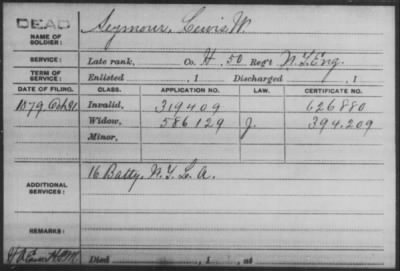 DEAD
NAME OF SOLDIER: Seymour, Lewis W.
SERVICE: Late rank, Co. H, 50 Reg't N.Y. Eng.
TERM OF SERVICE: Enlisted , 1 Discharged , 1
DATE OF FILING. CLASS. APPLICATION NO. LAW. CERTIFICATE NO.
1879 Oct 31 Invalid, 319409 626880
Widow, 586129 J. 394.209
Minor,
ADDITIONAL SERVICES: 16 Batty. N.Y. L. A.
REMARKS:
Died , 1 , at